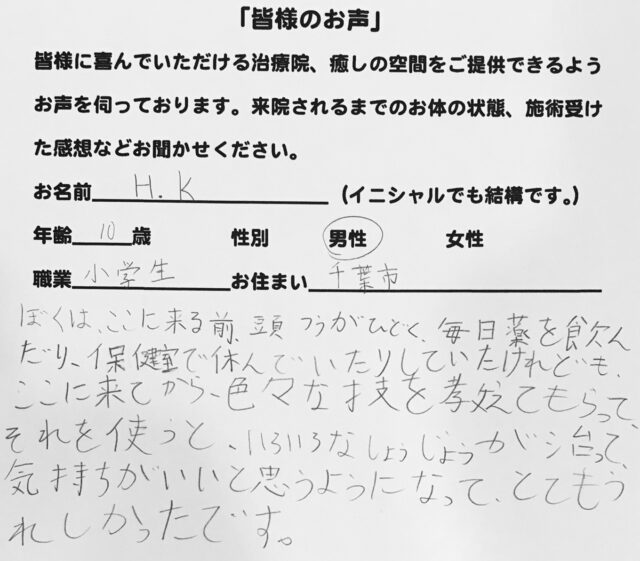 「皆様のお声」
皆様に喜んでいただける治療院、癒しの空間をご提供できるよう
お声を伺っております。来院されるまでのお体の状態、施術受け
た感想などお聞かせください。
お名前 H.K （イニシャルでも結構です。）
年齢 10 歳 性別 男性 女性
職業 小学生 お住まい 千葉市
ぼくは、ここに来る前、頭つうがひどく、毎日薬を飲ん
だり、保健室で休んでいたりしていたけれども、
ここに来てから、色々な技を教えてもらって、
それを使うと、いろいろなしょうじょうが治って、
気持ちがいいと思うようになって、とてもう
れしかったです。